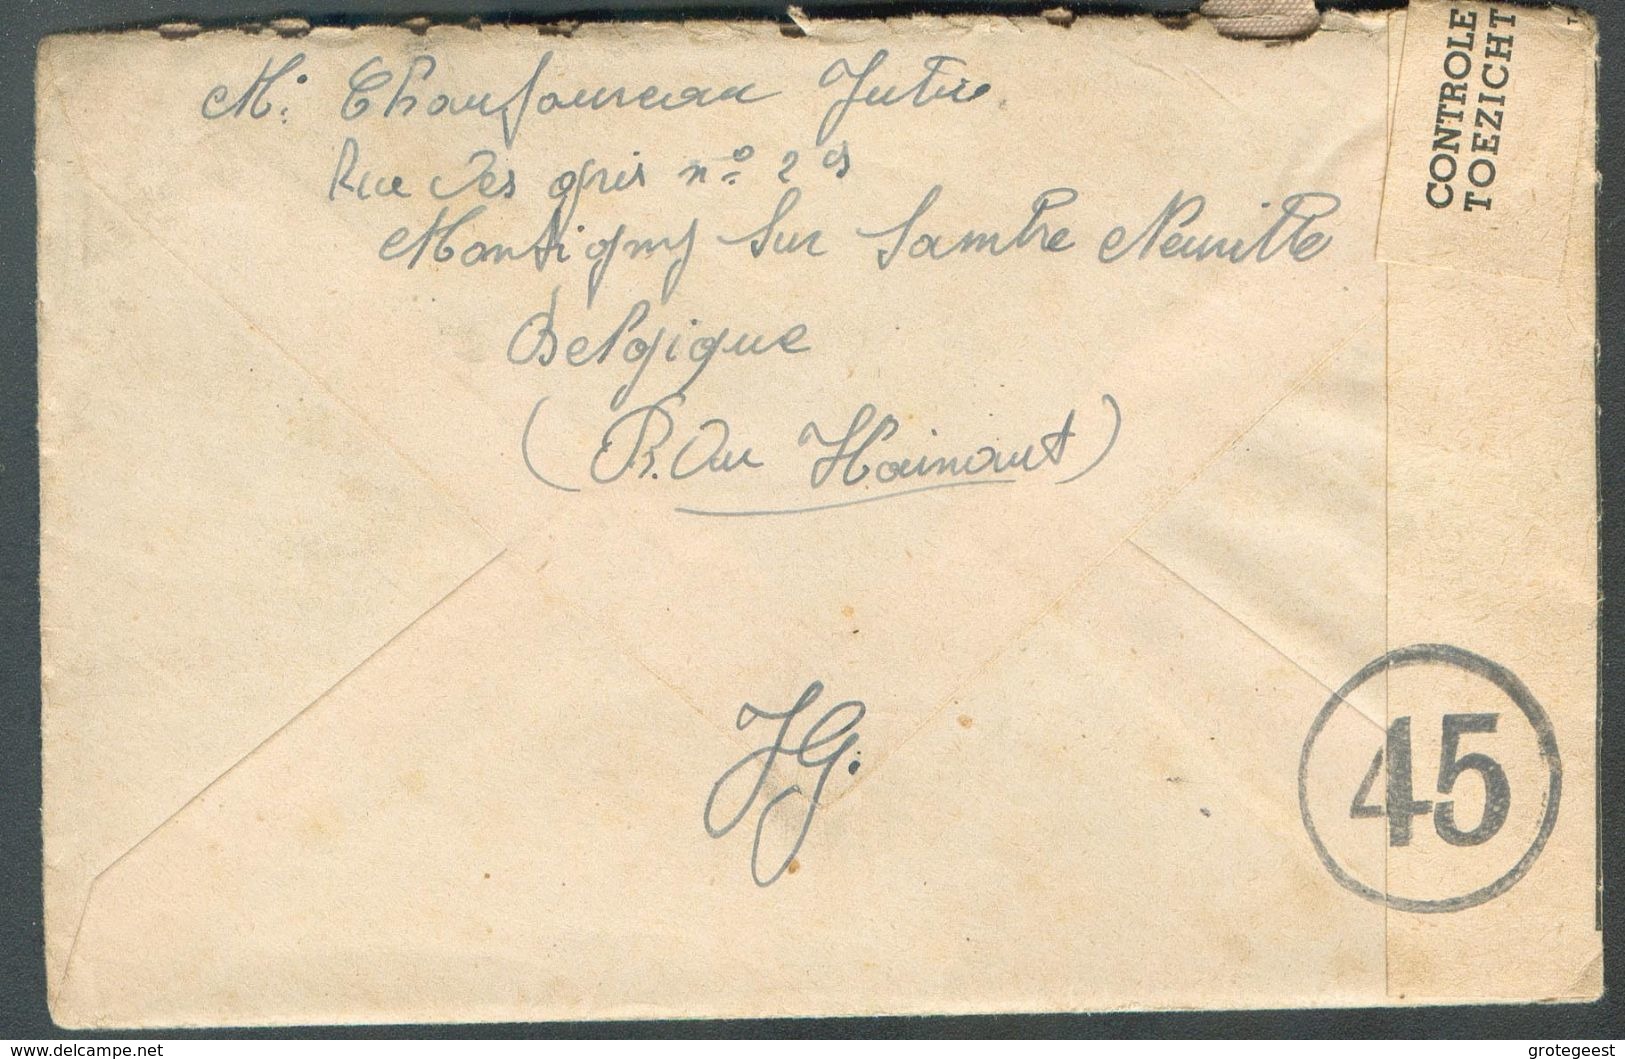 M: Chaufoureau Jules
Rue des gris n° 29
Montigny Sur Sambre Neuville
Belgique
(P. Du Hainaut)
JG.
CONTROLE
TOEZICHT
45
www.delcampe.net
grotegeest